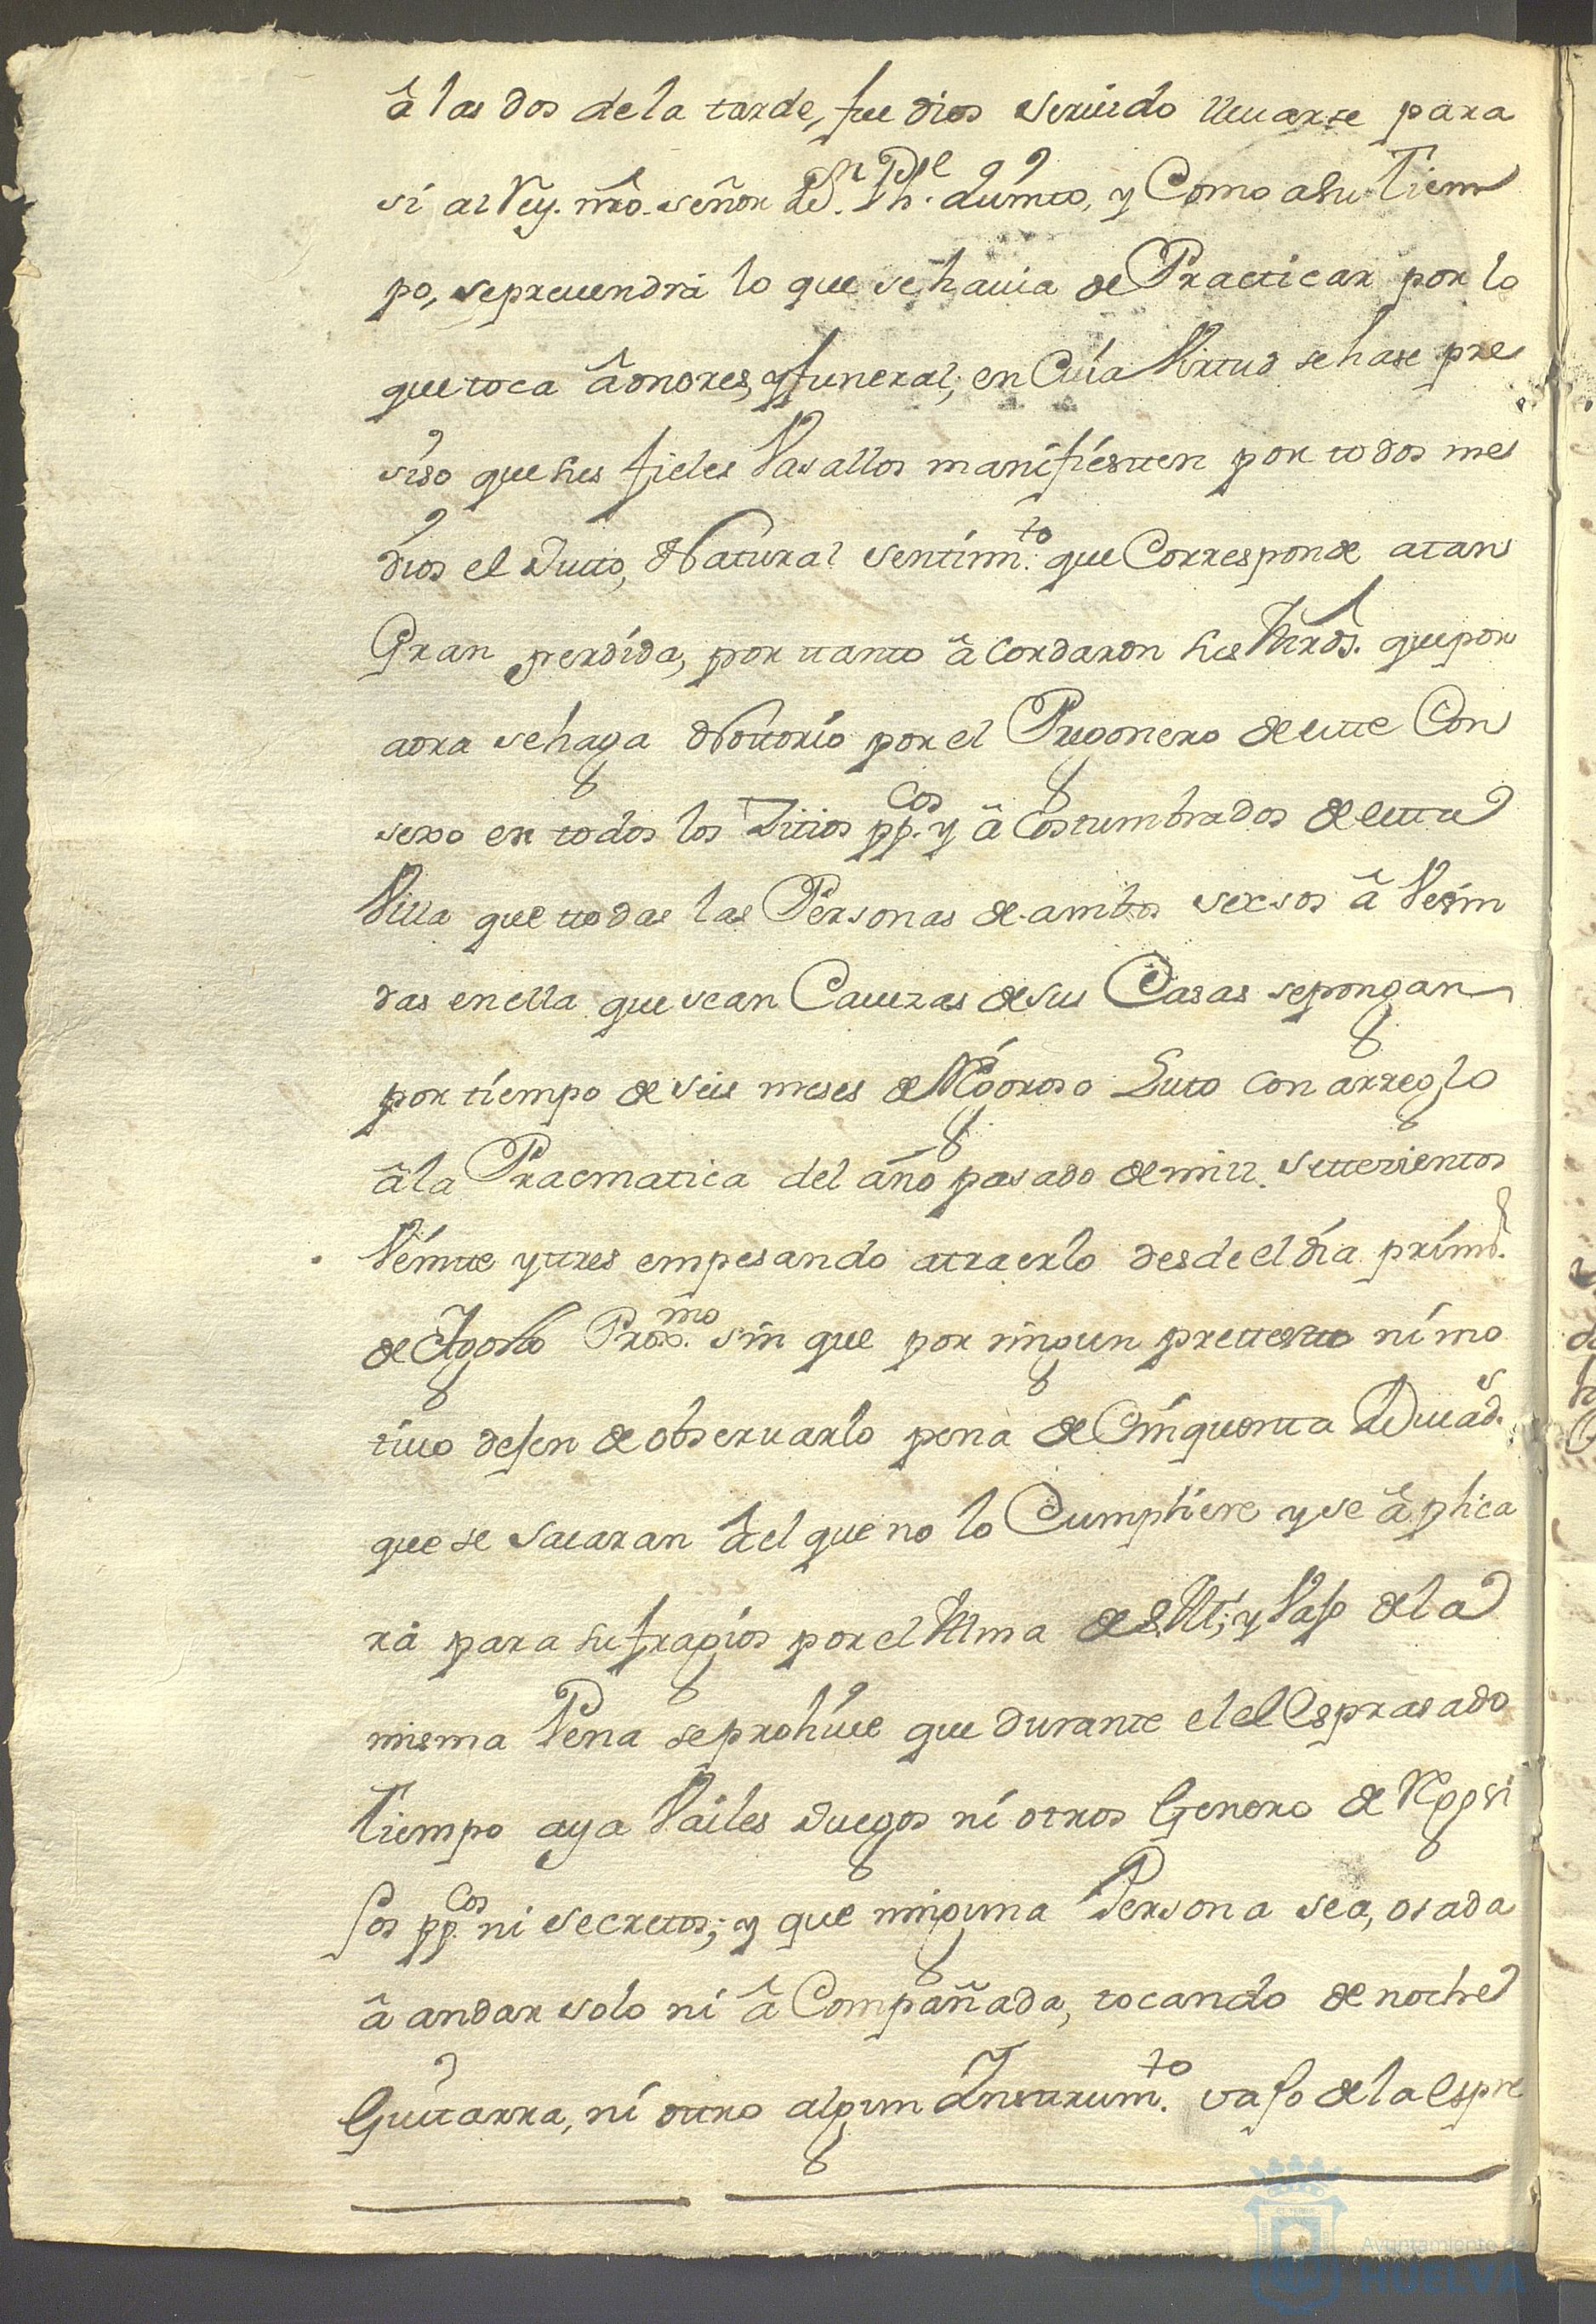 â las dos de la tarde, fue dios seruido lleuarse para
sí al Rey. nro. señor Dn. Phe. Quinto, y Como a su Tiem
po, se preuendrá lo que se hauia de Practicar por lo
que toca â onores, y funeral; en Cuía Virtud se hase pre
siso que sus fieles Vasallos manifiesten por todos me
dios el Justo, Natural sentimto. que Corresponde a tan
Gran perdida, por tanto â cordaron sus Mrds. que por
aora se haga Nottorio por el Pregonero de este Con
sexo en todos los Sitios ppcos. y â Costumbrados de esta
Villa que todas las Personas de ambos sexsos â Vesin
das en ella que sean Cauezas de sus Casas se pongan
por tiempo de seis meses de Rigoroso Luto con arreglo
â la Pracmatica del año pasado de mill. settesientos
Veinte y tres empesando a traerlo desde el día primo.
de Agosto Proxmo. sin que por ningun pretesto ní mo
tiuo desen de obseruarlo pena de Cinquenta Ducads.
que se sacaran â el que no lo Cumpliere y se â plica
rá para sufragios por el Alma de S. M; y Vajo de la
misma Pena se prohiue que durante el el Espresado
Tiempo aya Vailes Juegos ní otros Genero de Regosi
sos ppcos. ni secretos; y que ninguna Persona sea, osada
â andar solo ni â Compañada, tocando de noche
Guitarra, ní otro algun Instrumto. vajo de la Espre
Ayuntamiento de
HUELVA